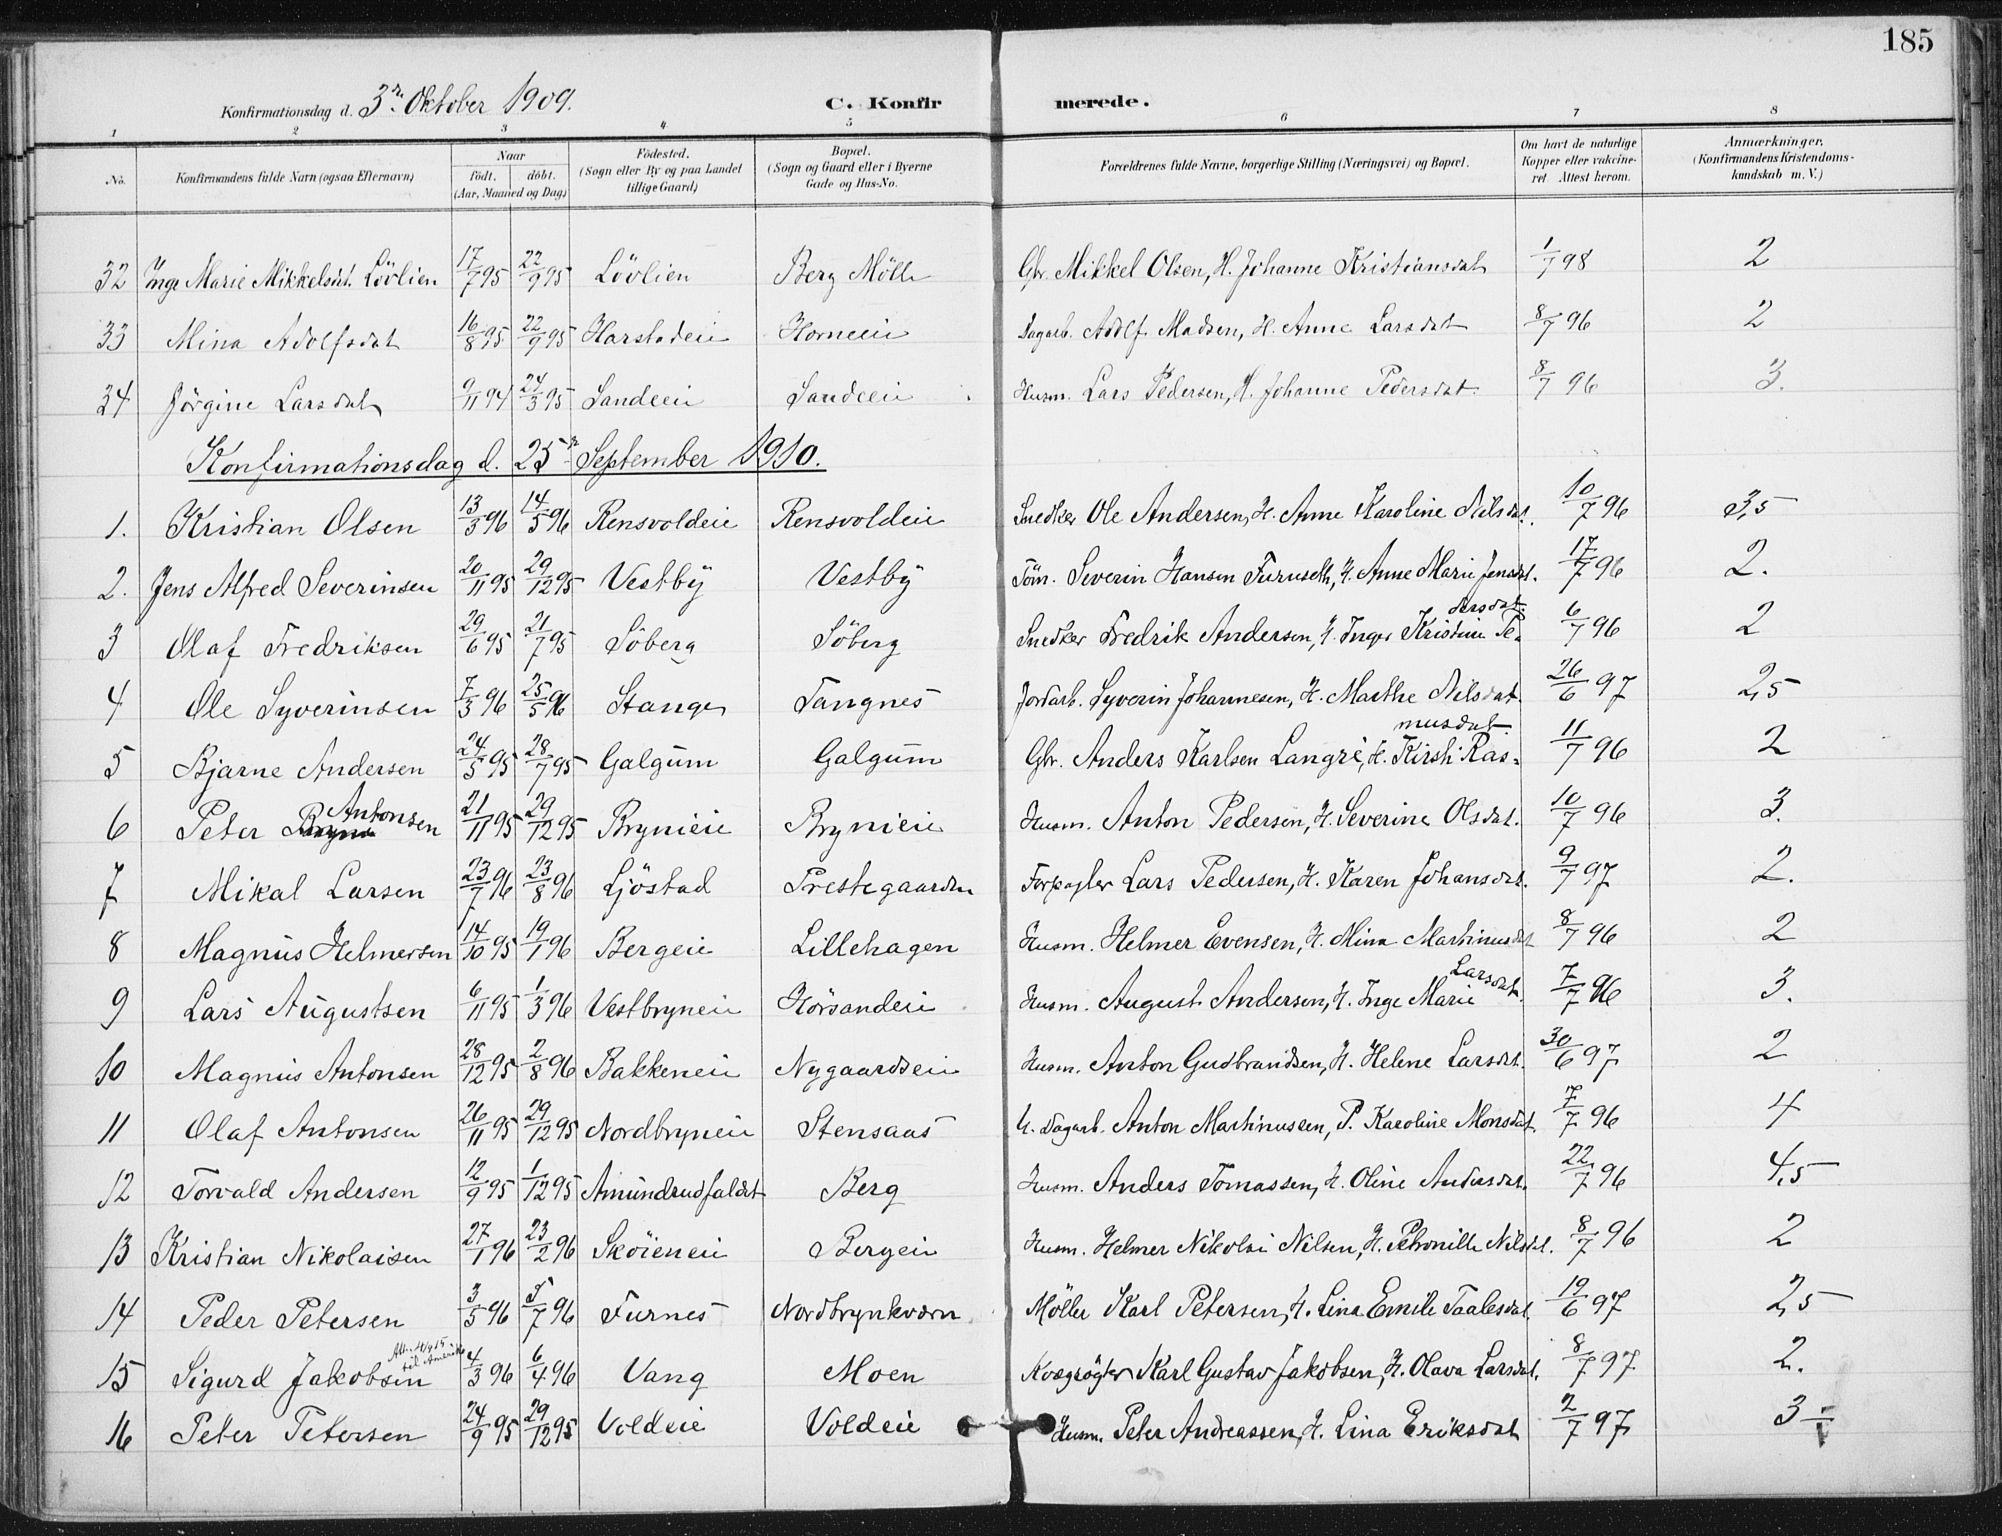 185
Konfirmationsdag d. 3die Oktober 1909. C. Konfirmerede.
1 2 3 4 5 6 7 8
No. Konfirmandens fulde Navn (ogsaa Efternavn) Naar födt. döbt. (Aar, Maaned og Dag) Födested. (Sogn eller By og paa Landet tillige Gaard) Bopæl. (Sogn og Gaard eller i Byerne Gade og Hus-No. Forældrenes fulde Navne, borgerlige Stilling (Næringsvei) og Bopæl. Om havt de naturlige Kopper eller vakcineret. Attest herom. Anmærkninger. (Konfirmandens Kristendomskundskab m. V.)
32 Inge Marie Mikkelsdt. Lövlien 17/7 95 22/9 95 Lövlien Berg Mölle Gbr. Mikkel Olsen, H. Johanne Kristiansdat 1/7 98 2
33 Mina Adolfsdat 16/8 95 22/9 95 Harstadeie Horneeie Dagarb. Adolf Madsen, H. Anne Larsdat 8/7 96 2
34 Jörgine Larsdat 9/11 94 24/3 95 Sandeeie Sandeeie Husm. Lars Pedersen, H. Johanne Pedersdat. 8/7 96 3.
Konfirmationsdag d. 25 September 1910.
1. Kristian Olsen 13/3 96 14/5 96 Rensvoldeie Rensvoldeie Snedker Ole Andersen, H. Anne Karoline Nilsdat. 10/7 96 3,5
2. Jens Alfred Severinsen 20/11 95 29/12 95 Vestbÿ Vestbÿ Töm. Severin Hansen Furuseth, H. Anne Marie Jensdat. 17/7 96 2.
3 Olaf Fredriksen 29/6 95 21/7 95 Söberg Söberg Snedker Fredrik Andersen, H. Inger Kristine Pedersdat. 6/7 96 2
4 Ole Syverinsen 7/3 96 25/5 96 Stange Tangnes Jordarb. Syverin Johannesen, H. Marthe Nilsdat. 26/6 97 2,5
5 Bjarne Andersen 24/5 95 28/7 95 Galgum Galgum Gbr. Anders Karlsen Langre, H. Kirsti Rasmusdat. 11/7 96 2
6 Peter Antonsen 21/11 95 29/12 95 Brynieie Brynieie Husm. Anton Pedersen, H. Severine Olsdat. 10/7 96 3.
7 Mikal Larsen 23/7 96 23/8 96 Ljöstad Prestegaarden Forpagter Lars Pedersen, H. Karen Johansdat. 9/7 97 2.
8 Magnus Helmersen 14/10 95 19/1 96 Bergeie Lillehagen Husm. Helmer Evensen, H. Mina Martinusdat 8/7 96 2
9 Lars Augustsen 6/11 95 1/3 96 Vestbryneie Hörsandeie Husm. August Andersen, H. Inge Marie Larsdat. 7/7 96 3.
10 Magnus Antonsen 28/12 95 2/8 96 Bakkeneie Nygaardseie Husm. Anton Gudbrandsen, H. Helene Larsdat. 30/6 97 2
11 Olaf Antonsen 26/11 95 29/12 95 Nordbryneie Stensaas U. dagarb. Anton Martinussen, P. Karoline Monsdat. 7/7 96 4
12 Torvald Andersen 12/9 95 1/12 95 Amundrudfaldet Berg Husm. Anders Tomassen, H. Oline Andersdat. 22/7 96 4,5
13 Kristian Nikolaisen 27/1 96 23/2 96 Skoieneie Bergeie Husm. Helmer Nikolai Nilsen, H. Petronille Nilsdat. 8/7 96 2
14 Peder Petersen 3/5 96 5/7 96 Furnes Nordbrynkværn Möller Karl Petersen, H. Lina Emilie Taalesdat. 19/6 97 2,5
15 Sigurd Jakobsen Att. 4/4 15 til Amerika 4/3 96 6/4 96 Vang Moen Kvægrögter Karl Gustav Jakobsen, H. Olava Larsdat. 8/7 97 2.
16 Peter Petersen 24/9 95 29/12 95 Voldeie Voldeie Husm. Peter Andreassen, H. Lina Eriksdat 2/7 97 3 ÷